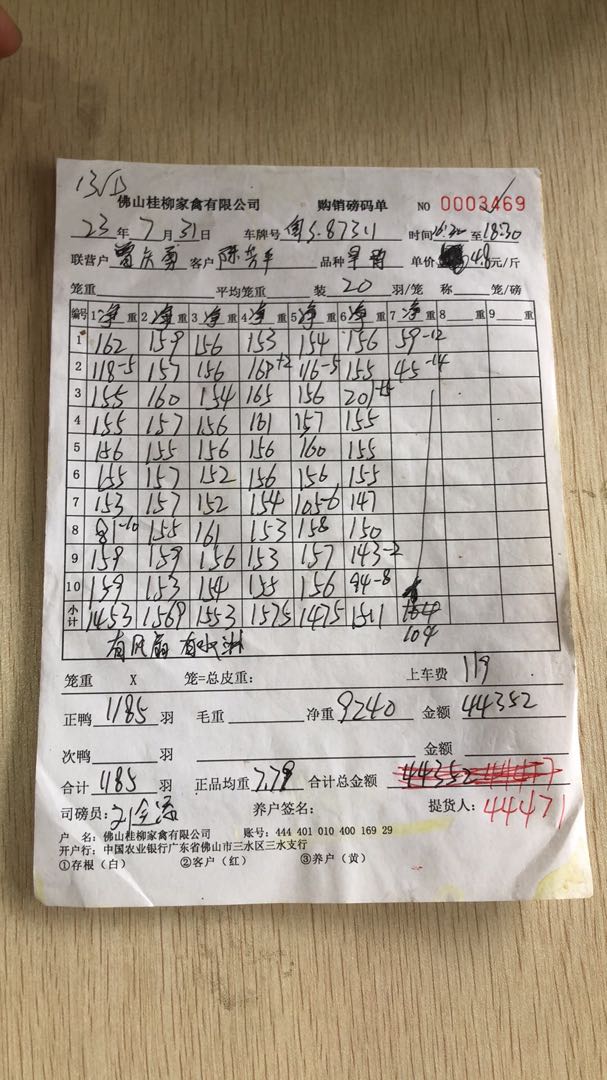 佛山桂柳家禽有限公司 购销磅码单 NO 0003469
23年 7月 31日 车牌号 时间 至 18:30
联营户 客户 品种 单价 4.8元/斤
笼重 平均笼重 装 20 羽/笼 称 笼/磅
编号 1 净重 2 净重 3 净重 4 净重 5 净重 6 净重 7 净重 8 重 9 重
1 162 159 156 153 154 156 59-12
2 118-5 157 156 160+2 116-5 155 45-14
3 155 160 154 165 156 201+5
4 155 157 156 161 157 155
5 156 155 156 156 160 155
6 155 157 152 156 156 155
7 153 157 152 154 105-6 147
8 81-10 155 161 153 158 150
9 159 159 156 153 157 143-2
10 159 153 154 155 156 94-8
小计 1453 1569 1553 1575 1475 1511 104
有风扇 有水淋
笼重 X 笼=总皮重: 上车费 119
正鸭 1185 羽 毛重 净重 9240 金额 44352
次鸭 羽 金额
合计 1185 羽 正品均重 7.79 合计总金额 44352
司磅员: 养户签名: 提货人: 44471
户 名: 佛山桂柳家禽有限公司 账号: 444 401 010 400 169 29
开户行: 中国农业银行广东省佛山市三水区三水支行
①存根（白） ②客户（红） ③养户（黄）